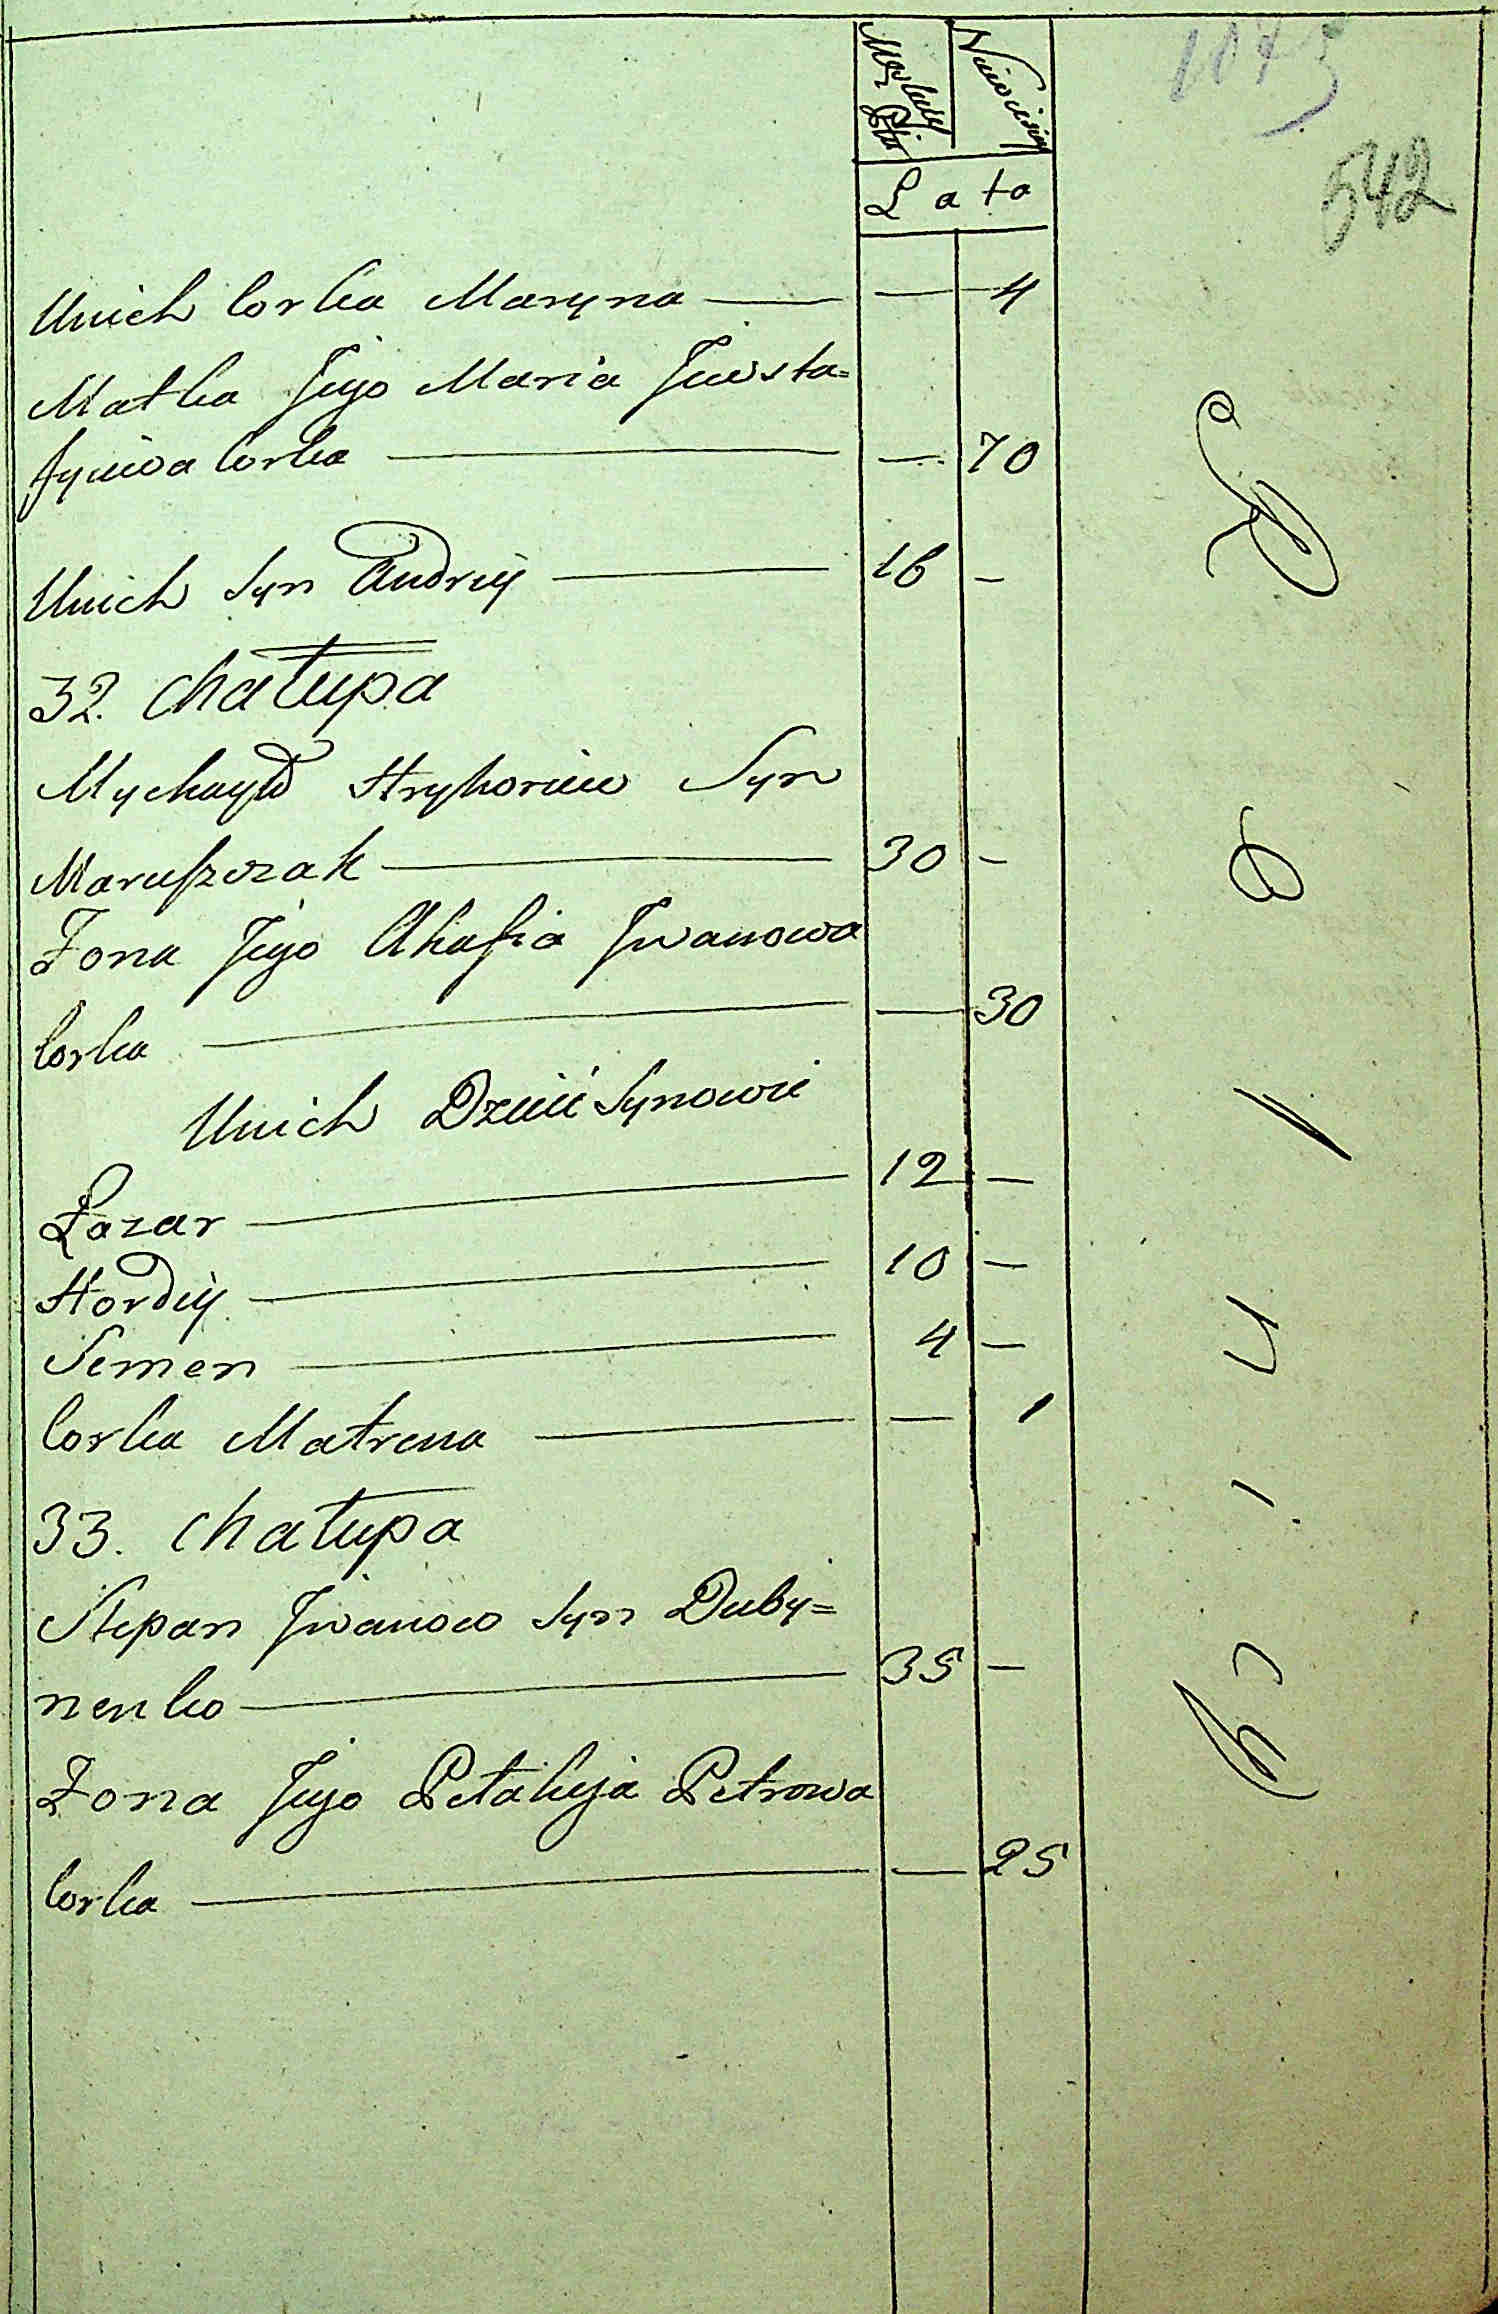 Męskiey Płci
Niewiesciey
Lata
1043
542
Unich Corka Maryna — — 4
Matka Jego Maria Jewsta=
fyiewa Corka — — 70
Unich Syn Andriy — 16 —
32. Chałupa
Mychayło Hryhoriew Syn
Maruszczak — 30 —
Żona Jego Ahafia Jwanowa
Corka — — 30
Unich Dzieci Synowie
Łazar — 12 —
Hordiy — 10 —
Semen — 4 —
Corka Matrena — — 1
33. Chałupa
Stepan Jwanow Syn Duby=
nenko — 35 —
Żona Jego Petahija Petrowa
Corka — — 25